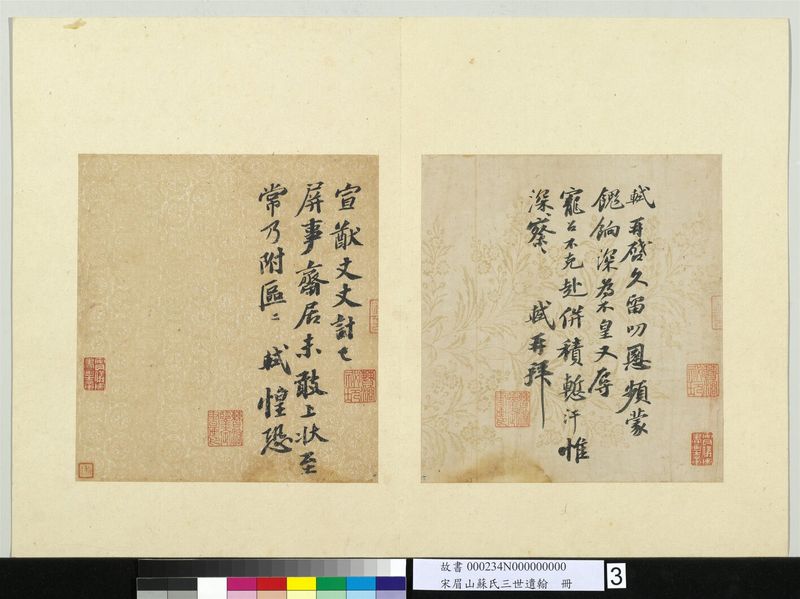 軾再啓久留叨恩頻蒙
餽餉深為不皇又辱
寵召不克赴併積慙汗惟
深〻察〻 軾再拜
宣猷丈丈計已
屏事齋居未敢上狀至
常乃附區〻 軾惶恐
故書 000234N000000000
宋眉山蘇氏三世遺翰 冊
3